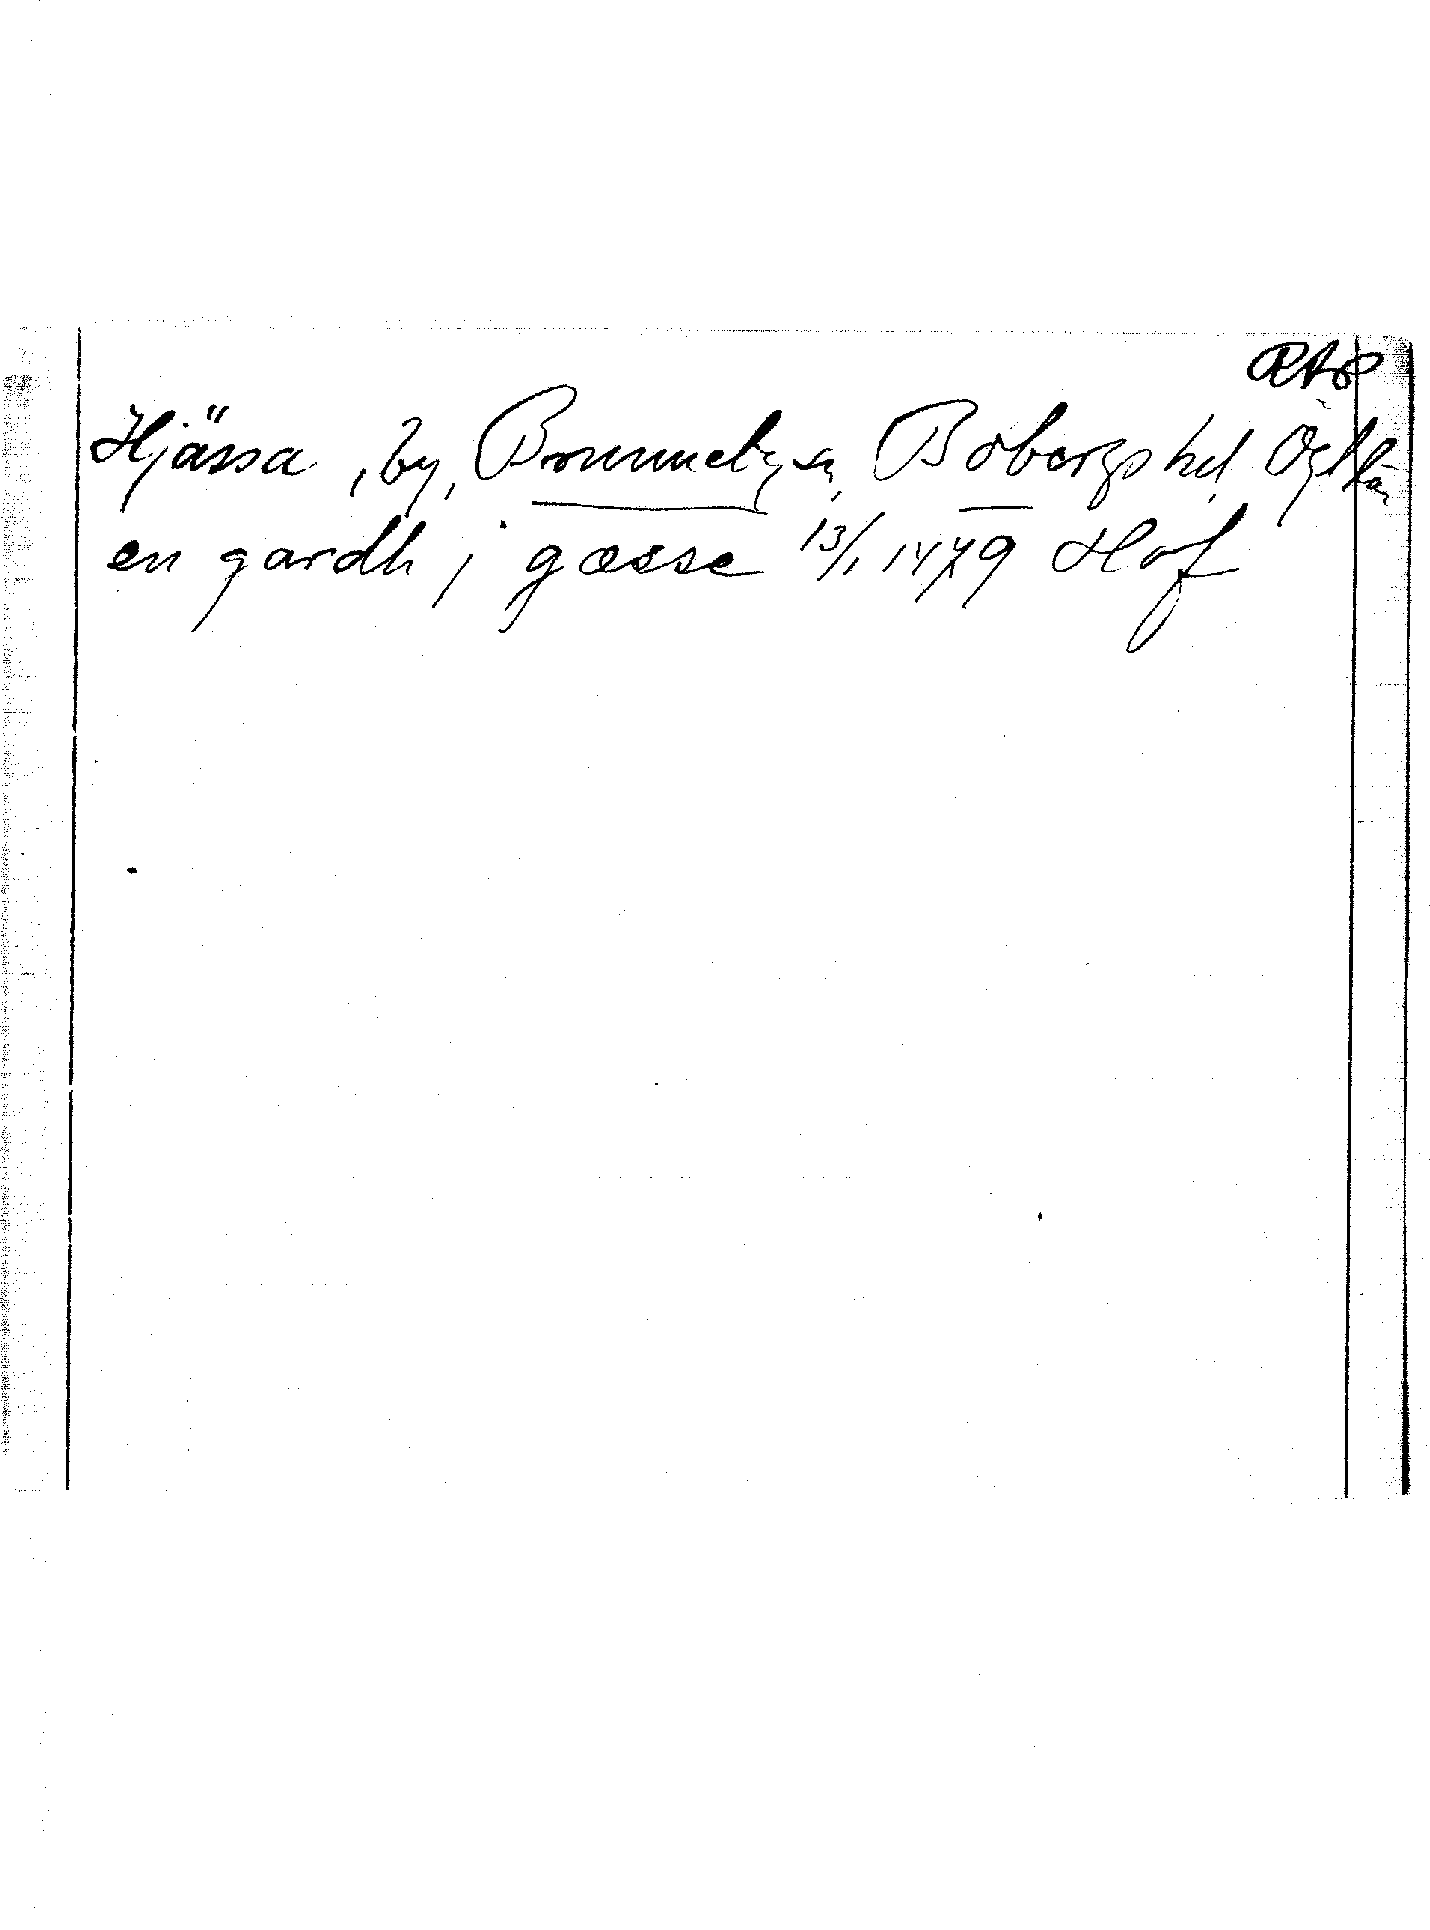 RAp
Hjässa, by, Brunneby sn, Bobergs hd, Ögl län
en gardh j gæsse 13/1 1479 Hof